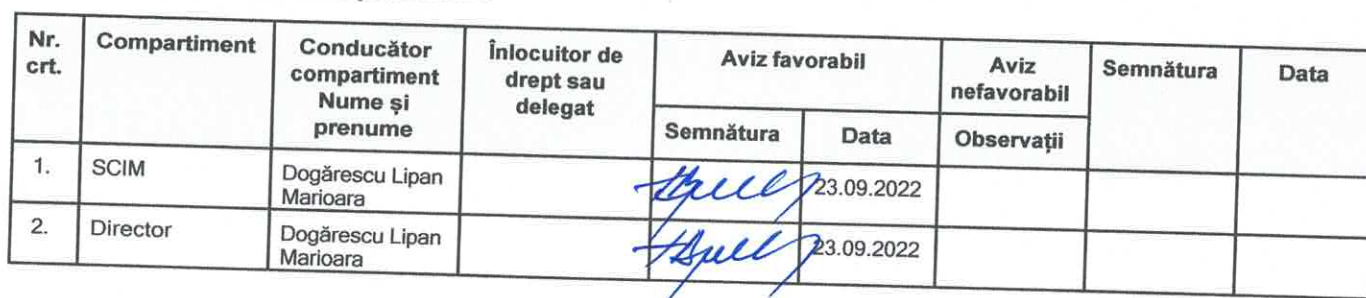 Nr. crt.
Compartiment
Conducător compartiment Nume și prenume
Înlocuitor de drept sau delegat
Aviz favorabil
Aviz nefavorabil
Semnătura
Data
Semnătura
Data
Observații
1.
SCIM
Dogărescu Lipan
Marioara
23.09.2022
2.
Director
Dogărescu Lipan
Marioara
23.09.2022